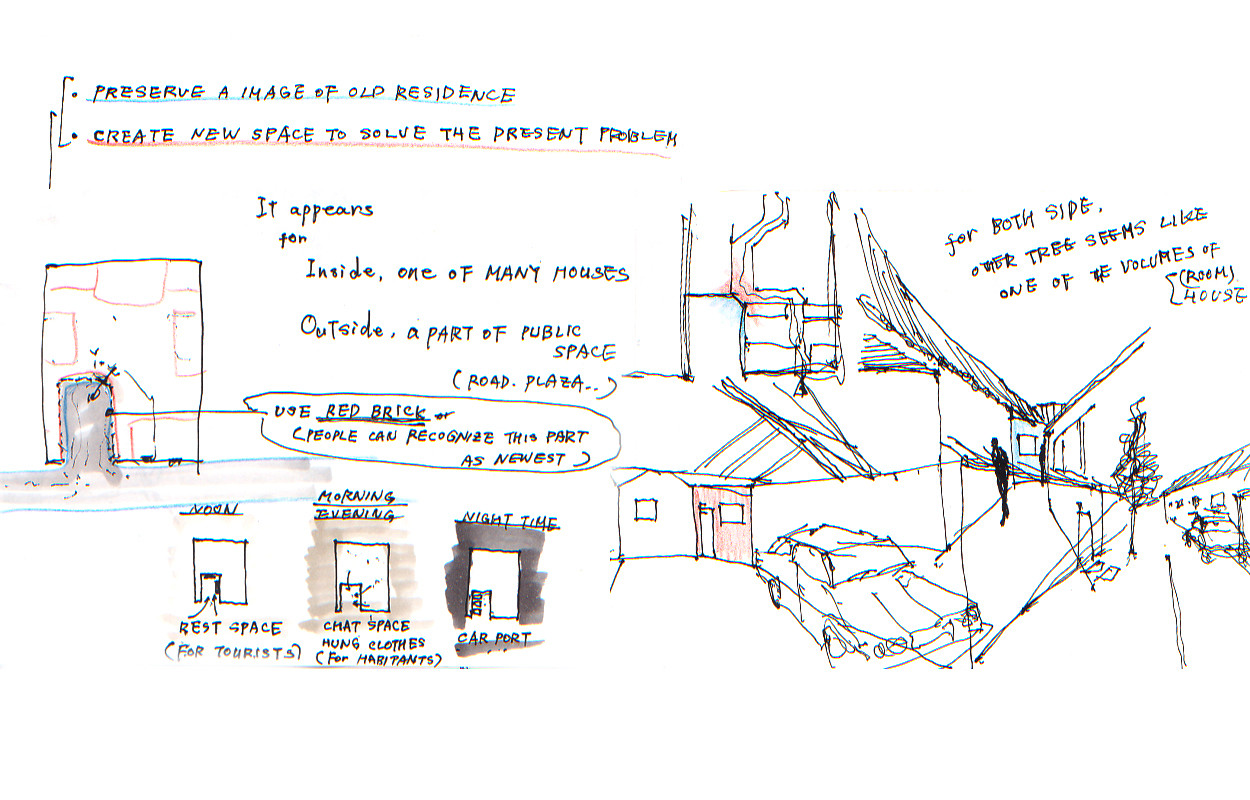 • PRESERVE A IMAGE OF OLD RESIDENCE
• CREATE NEW SPACE TO SOLVE THE PRESENT PROBLEM
It appears
for
Inside, one OF MANY HOUSES
Outside, a PART OF PUBLIC
SPACE
(ROAD. PLAZA..)
USE RED BRICK or
(PEOPLE CAN RECOGNIZE THIS PART
AS NEWEST)
for BOTH SIDE,
OTHER TREE SEEMS LIKE
ONE OF THE VOLUMES OF
(ROOM)
HOUSE
NOON
REST SPACE
(FOR TOURISTS)
MORNING
EVENING
CHAT SPACE
HUNG CLOTHES
(For HABITANTS)
NIGHT TIME
CAR PORT